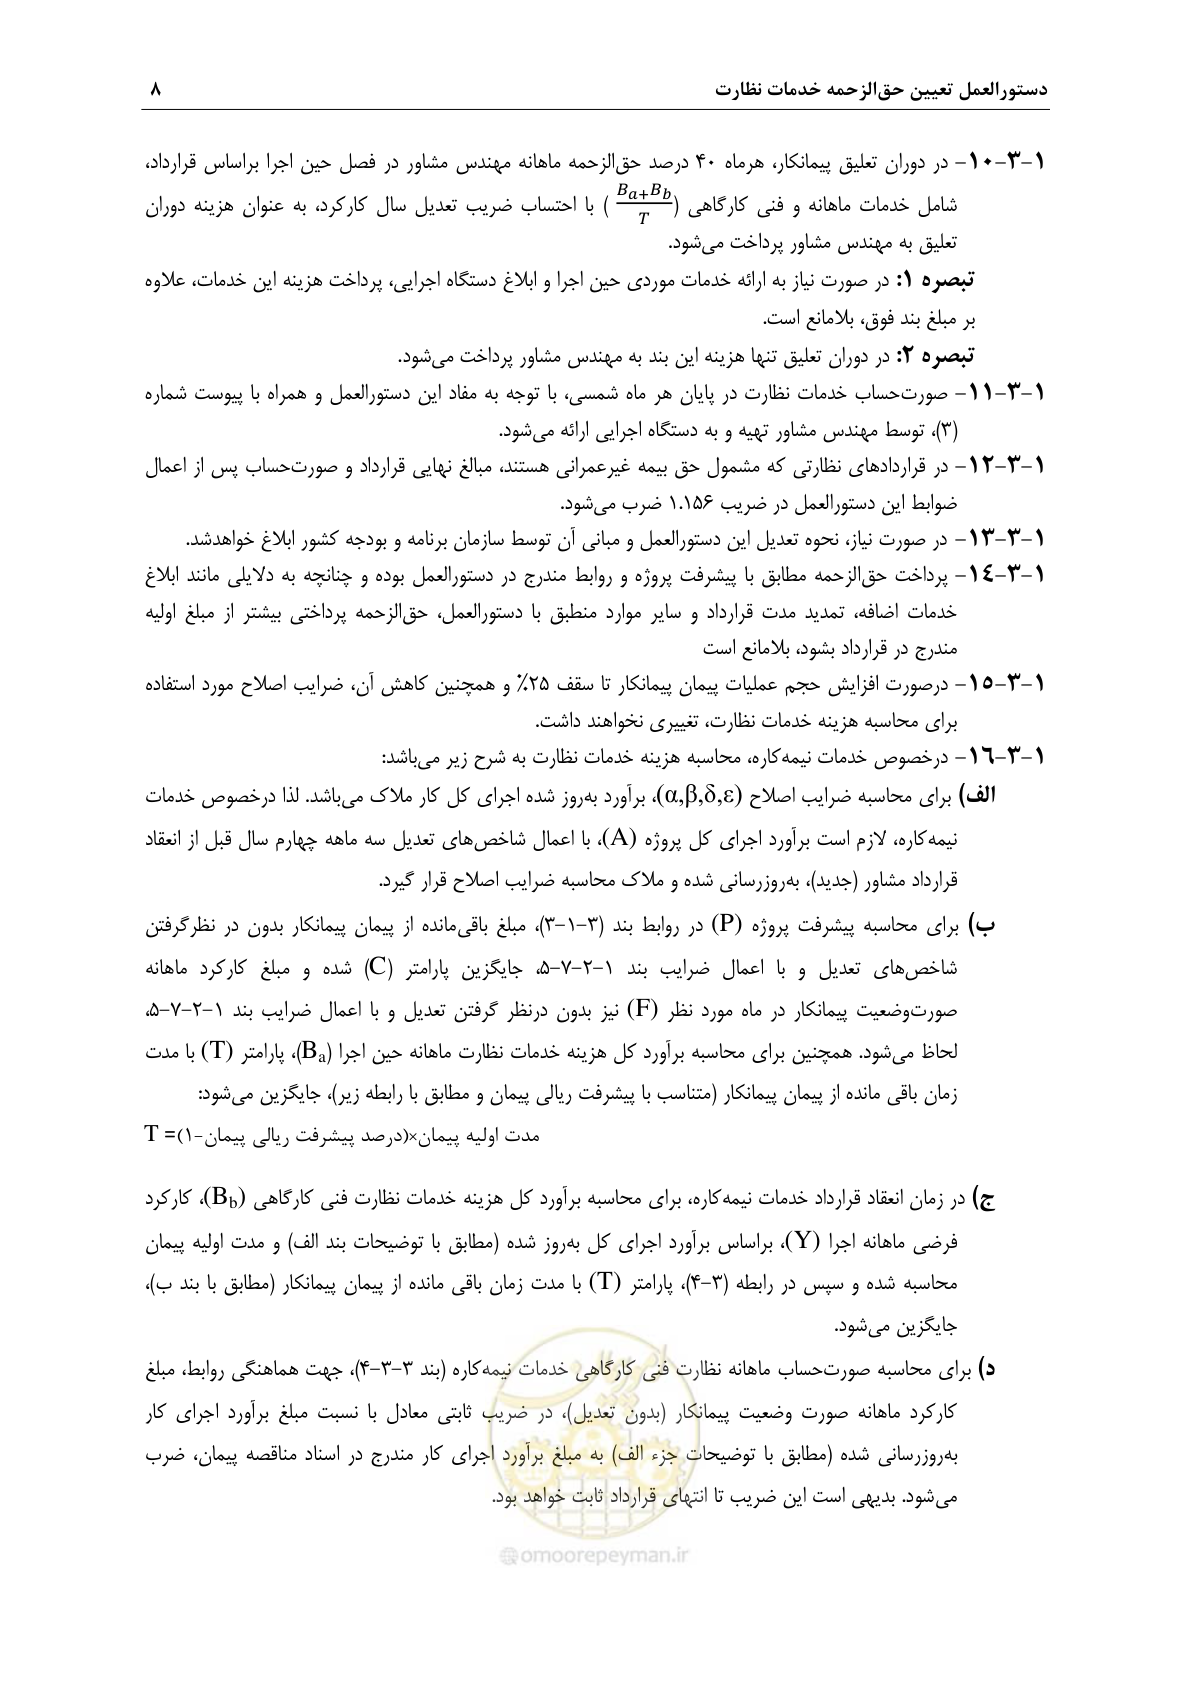 دستورالعمل تعیین حق‌الزحمه خدمات نظارت ۸
۱-۳-۱۰- در دوران تعلیق پیمانکار، هرماه ۴۰ درصد حق‌الزحمه ماهانه مهندس مشاور در فصل حین اجرا براساس قرارداد،
شامل خدمات ماهانه و فنی کارگاهی (\frac{B_a+B_b}{T}) با احتساب ضریب تعدیل سال کارکرد، به عنوان هزینه دوران
تعلیق به مهندس مشاور پرداخت می‌شود.
تبصره ۱: در صورت نیاز به ارائه خدمات موردی حین اجرا و ابلاغ دستگاه اجرایی، پرداخت هزینه این خدمات، علاوه
بر مبلغ بند فوق، بلامانع است.
تبصره ۲: در دوران تعلیق تنها هزینه این بند به مهندس مشاور پرداخت می‌شود.
۱-۳-۱۱- صورت‌حساب خدمات نظارت در پایان هر ماه شمسی، با توجه به مفاد این دستورالعمل و همراه با پیوست شماره
(۳)، توسط مهندس مشاور تهیه و به دستگاه اجرایی ارائه می‌شود.
۱-۳-۱۲- در قراردادهای نظارتی که مشمول حق بیمه غیرعمرانی هستند، مبالغ نهایی قرارداد و صورت‌حساب پس از اعمال
ضوابط این دستورالعمل در ضریب ۱.۱۵۶ ضرب می‌شود.
۱-۳-۱۳- در صورت نیاز، نحوه تعدیل این دستورالعمل و مبانی آن توسط سازمان برنامه و بودجه کشور ابلاغ خواهدشد.
۱-۳-۱٤- پرداخت حق‌الزحمه مطابق با پیشرفت پروژه و روابط مندرج در دستورالعمل بوده و چنانچه به دلایلی مانند ابلاغ
خدمات اضافه، تمدید مدت قرارداد و سایر موارد منطبق با دستورالعمل، حق‌الزحمه پرداختی بیشتر از مبلغ اولیه
مندرج در قرارداد بشود، بلامانع است
۱-۳-۱٥- درصورت افزایش حجم عملیات پیمان پیمانکار تا سقف ۲۵٪ و همچنین کاهش آن، ضرایب اصلاح مورد استفاده
برای محاسبه هزینه خدمات نظارت، تغییری نخواهند داشت.
۱-۳-۱٦- درخصوص خدمات نیمه‌کاره، محاسبه هزینه خدمات نظارت به شرح زیر می‌باشد:
الف) برای محاسبه ضرایب اصلاح (α,β,δ,ε)، برآورد به‌روز شده اجرای کل کار ملاک می‌باشد. لذا درخصوص خدمات
نیمه‌کاره، لازم است برآورد اجرای کل پروژه (A)، با اعمال شاخص‌های تعدیل سه ماهه چهارم سال قبل از انعقاد
قرارداد مشاور (جدید)، به‌روزرسانی شده و ملاک محاسبه ضرایب اصلاح قرار گیرد.
ب) برای محاسبه پیشرفت پروژه (P) در روابط بند (۳-۱-۳)، مبلغ باقی‌مانده از پیمان پیمانکار بدون در نظرگرفتن
شاخص‌های تعدیل و با اعمال ضرایب بند ۱-۲-۷-۵، جایگزین پارامتر (C) شده و مبلغ کارکرد ماهانه
صورت‌وضعیت پیمانکار در ماه مورد نظر (F) نیز بدون درنظر گرفتن تعدیل و با اعمال ضرایب بند ۱-۲-۷-۵،
لحاظ می‌شود. همچنین برای محاسبه برآورد کل هزینه خدمات نظارت ماهانه حین اجرا (Ba)، پارامتر (T) با مدت
زمان باقی مانده از پیمان پیمانکار (متناسب با پیشرفت ریالی پیمان و مطابق با رابطه زیر)، جایگزین می‌شود:
مدت اولیه پیمان×(درصد پیشرفت ریالی پیمان-۱)= T
ج) در زمان انعقاد قرارداد خدمات نیمه‌کاره، برای محاسبه برآورد کل هزینه خدمات نظارت فنی کارگاهی (Bb)، کارکرد
فرضی ماهانه اجرا (Y)، براساس برآورد اجرای کل به‌روز شده (مطابق با توضیحات بند الف) و مدت اولیه پیمان
محاسبه شده و سپس در رابطه (۳-۴)، پارامتر (T) با مدت زمان باقی مانده از پیمان پیمانکار (مطابق با بند ب)،
جایگزین می‌شود.
د) برای محاسبه صورت‌حساب ماهانه نظارت فنی کارگاهی خدمات نیمه‌کاره (بند ۳-۳-۴)، جهت هماهنگی روابط، مبلغ
کارکرد ماهانه صورت وضعیت پیمانکار (بدون تعدیل)، در ضریب ثابتی معادل با نسبت مبلغ برآورد اجرای کار
به‌روزرسانی شده (مطابق با توضیحات جزء الف) به مبلغ برآورد اجرای کار مندرج در اسناد مناقصه پیمان، ضرب
می‌شود. بدیهی است این ضریب تا انتهای قرارداد ثابت خواهد بود.
@omoorepeyman.ir